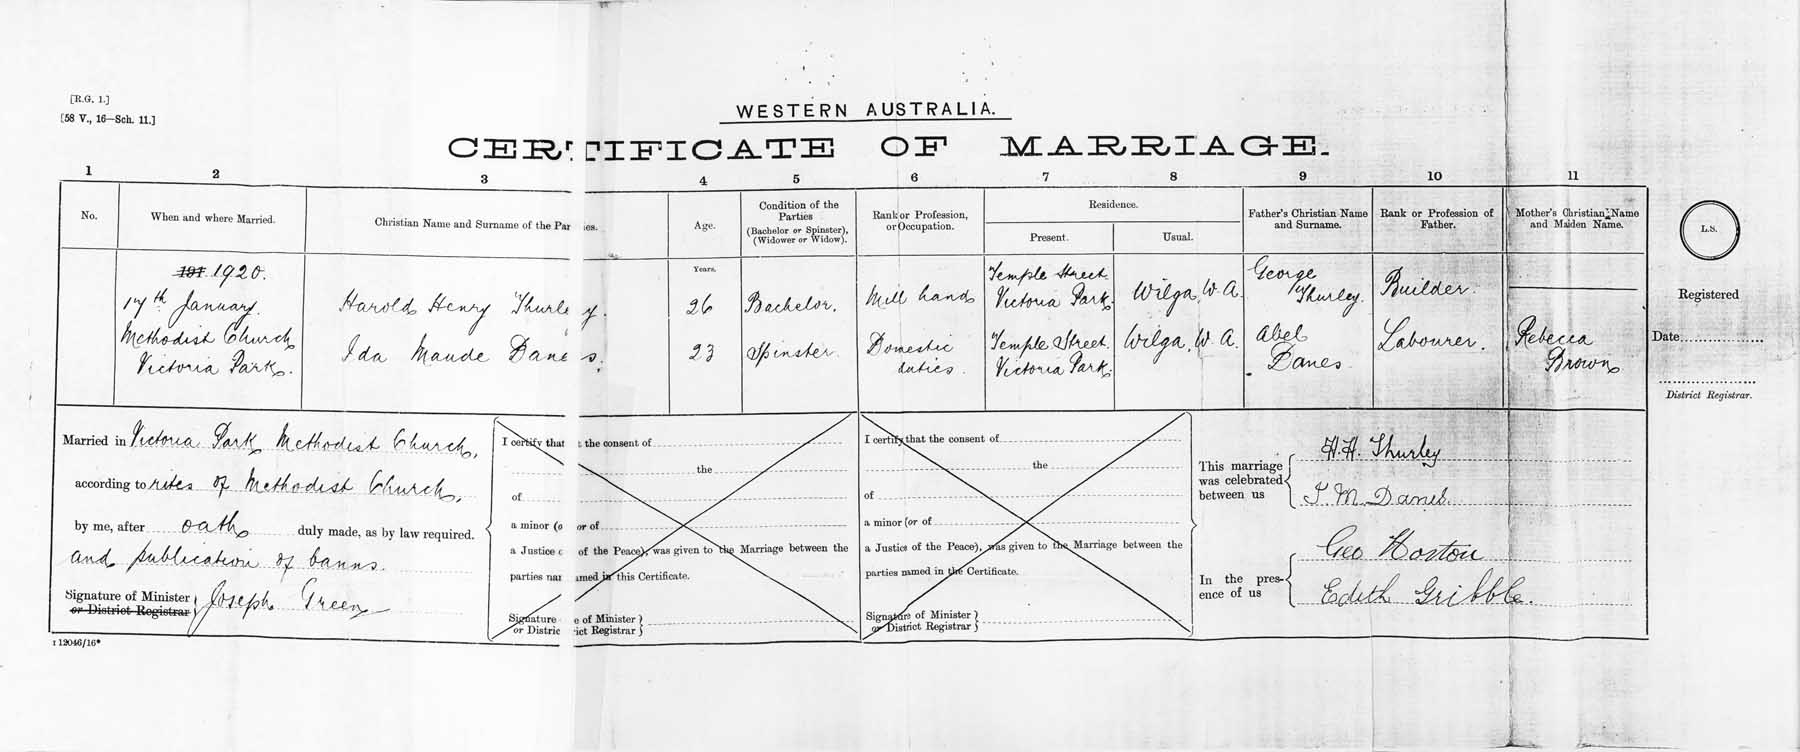 [R.G. 1.]
[58 V., 16—Sch. 11.]
WESTERN AUSTRALIA.
CERTIFICATE OF MARRIAGE.
1 2 3 4 5 6 7 8 9 10 11
No.
When and where Married.
Christian Name and Surname of the Parties.
Age.
Condition of the
Parties
(Bachelor or Spinster),
(Widower or Widow).
Rank or Profession,
or Occupation.
Residence.
Present.
Usual.
Father's Christian Name
and Surname.
Rank or Profession of
Father.
Mother's Christian Name
and Maiden Name.
L.S.
Registered
Date
District Registrar.
191 1920.
17th January.
Methodist Church
Victoria Park.
Harold Henry Thurley.
Years.
26
Bachelor.
Mill hand
Temple Street
Victoria Park.
Wilga, W.A.
George
Thurley.
Builder.
Ida Maude Danes.
23
Spinster.
Domestic
duties.
Temple Street.
Victoria Park.
Wilga, W.A.
Abel
Danes
Labourer.
Rebecca
Brown
Married in Victoria Park Methodist Church,
according to rites of Methodist Church,
by me, after oath duly made, as by law required.
and publication of banns.
Signature of Minister
or District Registrar
Joseph Green
I certify that the consent of
the
of
a minor (or of
a Justice of the Peace), was given to the Marriage between the
parties named in this Certificate.
Signature of Minister
or District Registrar
I certify that the consent of
the
of
a minor (or of
a Justice of the Peace), was given to the Marriage between the
parties named in the Certificate.
Signature of Minister
or District Registrar
This marriage
was celebrated
between us
H.H. Thurley
I. M. Danes.
In the pres-
ence of us
Geo Hoston
Edith Gribble.
I 12046/16*